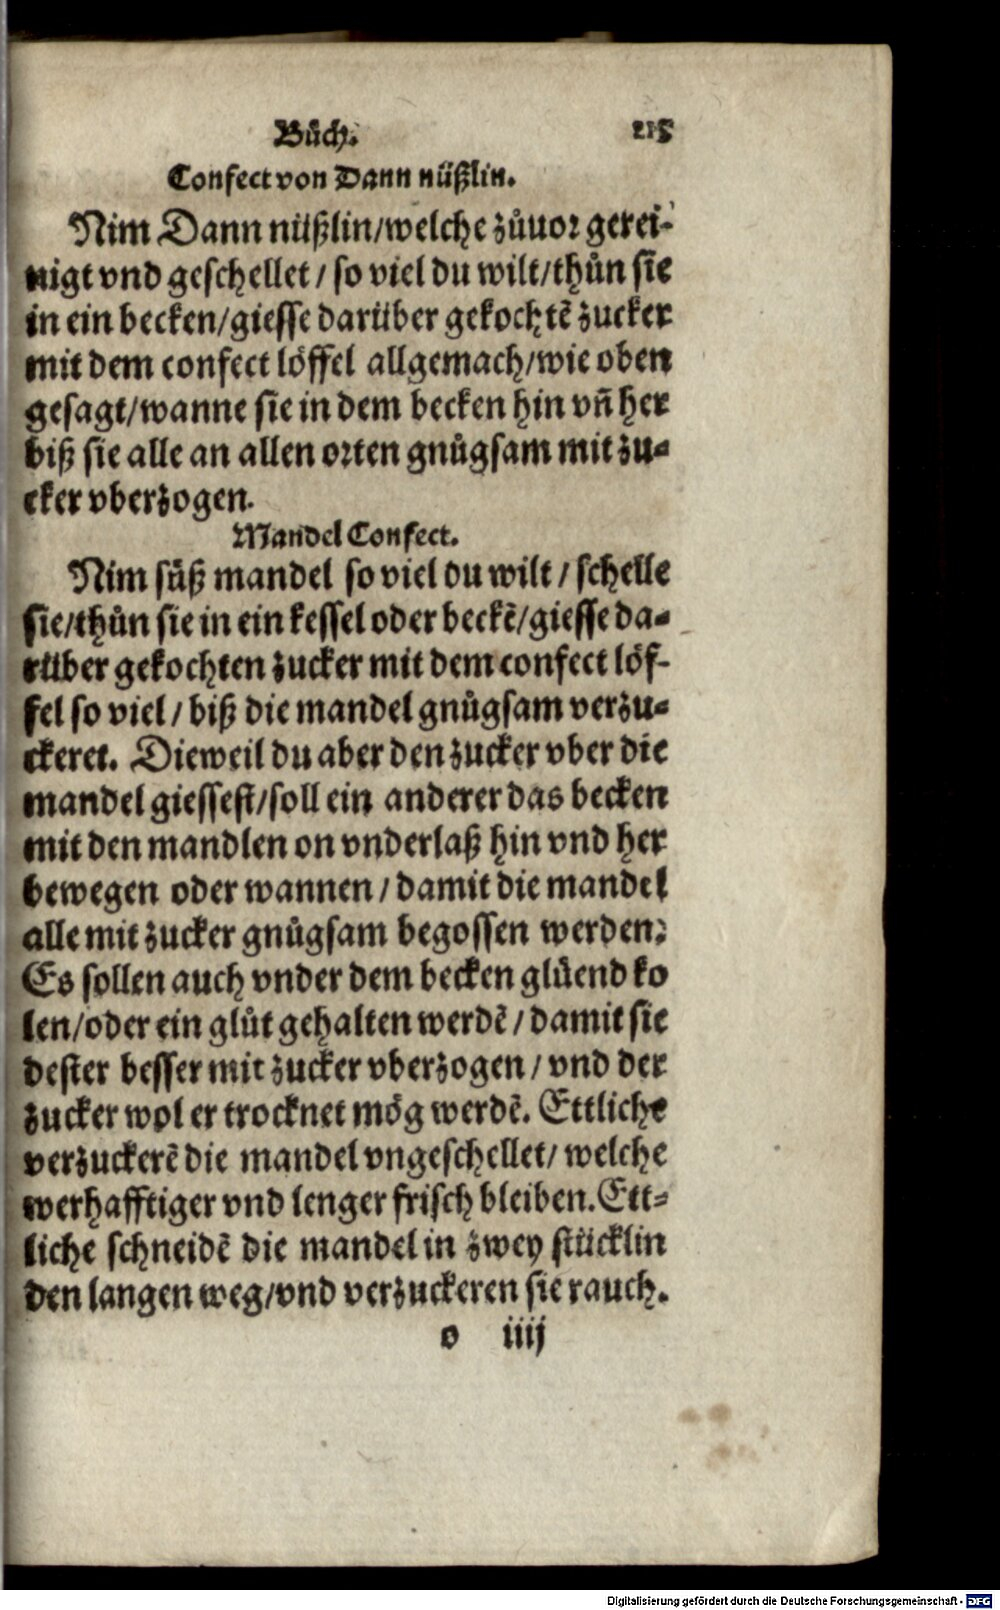 Bůch. 215
Confect von Dann nüßlin.
Nim Dann nüßlin/welche zůuor gerei-
nigt vnd geschellet / so viel du wilt/thůn sie
in ein becken/giesse darüber gekochtē zucker
mit dem confect löffel allgemach/wie oben
gesagt/wanne sie in dem becken hin vñ her
biß sie alle an allen orten gnůgsam mit zu-
cker vberzogen.
Mandel Confect.
Nim süß mandel so viel du wilt / schelle
sie/thůn sie in ein kessel oder beckē/giesse da-
rüber gekochten zucker mit dem confect löf-
fel so viel / biß die mandel gnůgsam verzu-
ckeret. Dieweil du aber den zucker vber die
mandel giessest/soll ein anderer das becken
mit den mandlen on vnderlaß hin vnd her
bewegen oder wannen / damit die mandel
alle mit zucker gnůgsam begossen werden:
Es sollen auch vnder dem becken glüend ko
len/oder ein glůt gehalten werdē / damit sie
dester besser mit zucker vberzogen / vnd der
zucker wol er trocknet mög werdē. Ettliche
verzuckerē die mandel vngeschellet/ welche
werhafftiger vnd lenger frisch bleiben. Ett-
liche schneidē die mandel in zwey stücklin
den langen weg/vnd verzuckeren sie rauch.
o iiij
Digitalisierung gefördert durch die Deutsche Forschungsgemeinschaft - DFG